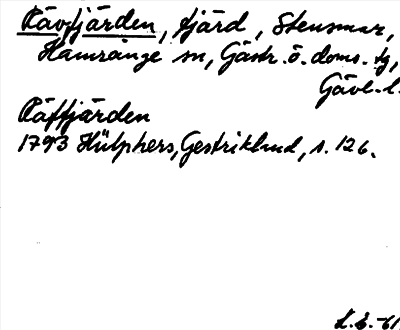 Rävfjärden, fjärd, Stensmar,
Hamrånge sn, Gästr. ö. doms. tg,
Gävl. l.
Räffjärden
1793 Hülphers, Gestrikland, s. 126.
L.E. -61.